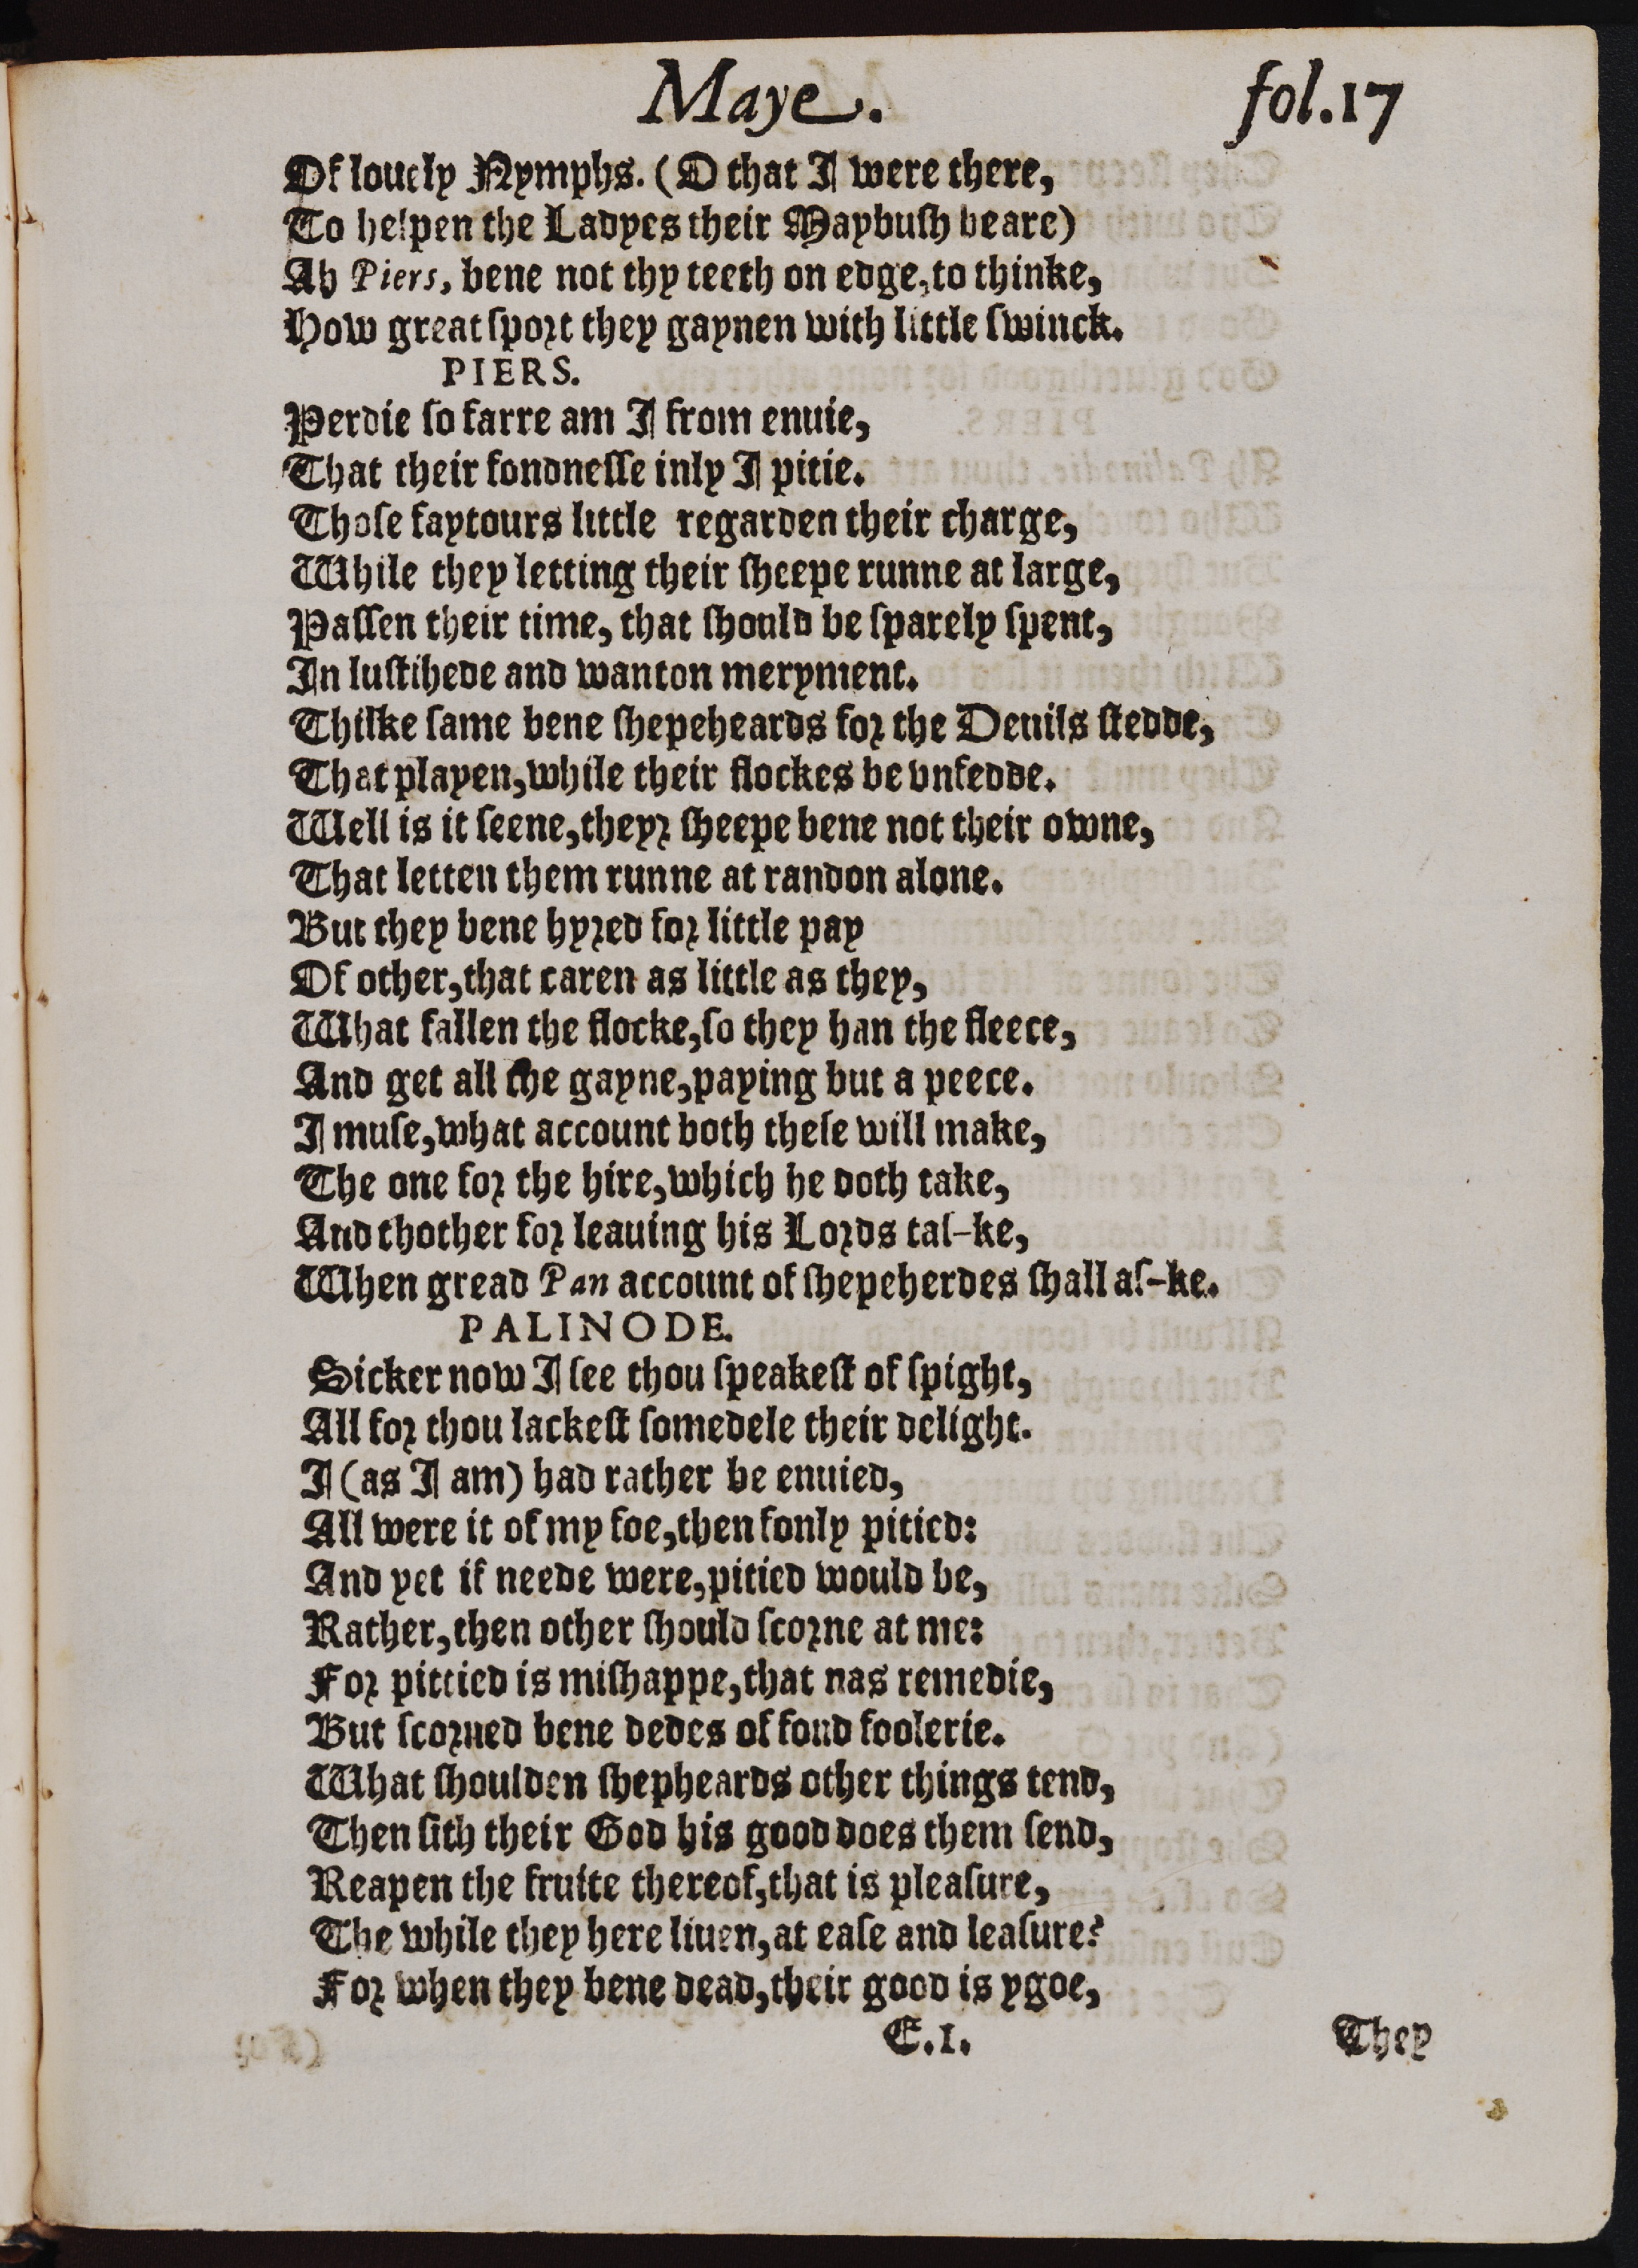 Maye. fol.17
Of louely Nymphs. (O that I were there,
To helpen the Ladyes their Maybuſh beare)
Ah Piers, bene not thy teeth on edge, to thinke,
How great ſport they gaynen with little ſwinck.
PIERS.
Perdie ſo farre am I from enuie,
That their fondneſſe inly I pitie.
Thoſe faytours little regarden their charge,
While they letting their ſheepe runne at large,
Paſſen their time, that ſhould be ſparely ſpent,
In luſtihede and wanton meryment.
Thilke ſame bene ſhepeheards for the Deuils ſtedde,
That playen, while their flockes be vnfedde.
Well is it ſeene, theyr ſheepe bene not their owne,
That letten them runne at randon alone.
But they bene hyred for little pay
Of other, that caren as little as they,
What fallen the flocke, ſo they han the fleece,
And get all the gayne, paying but a peece.
I muſe, what account both theſe will make,
The one for the hire, which he doth take,
And thother for leauing his Lords taſ-ke,
When gread Pan account of ſhepeherdes ſhall aſ-ke.
PALINODE.
Sicker now I ſee thou ſpeakeſt of ſpight,
All for thou lackeſt ſomedele their delight.
I (as I am) had rather be enuied,
All were it of my foe, then fonly pitied:
And yet if neede were, pitied would be,
Rather, then other ſhould ſcorne at me:
For pittied is miſhappe, that nas remedie,
But ſcorned bene dedes of fond foolerie.
What ſhoulden ſhepheards other things tend,
Then ſith their God his good does them ſend,
Reapen the fruite thereof, that is pleaſure,
The while they here liuen, at eaſe and leaſure?
For when they bene dead, their good is ygoe,
E.1. They